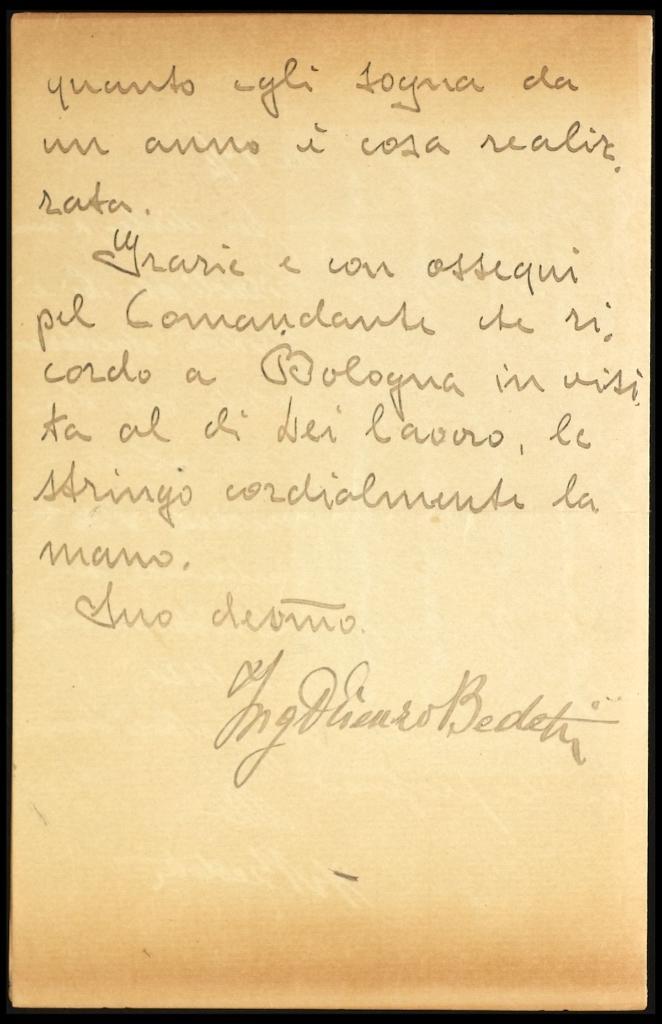 quanto egli sogna da
un anno è cosa realiz-
zata.
Grazie e con ossequi
pel Comandante che ri-
cordo a Bologna in visi-
ta al di Lei lavoro, le
stringo cordialmente la
mano.
Suo devmo.
Ing Bedetti